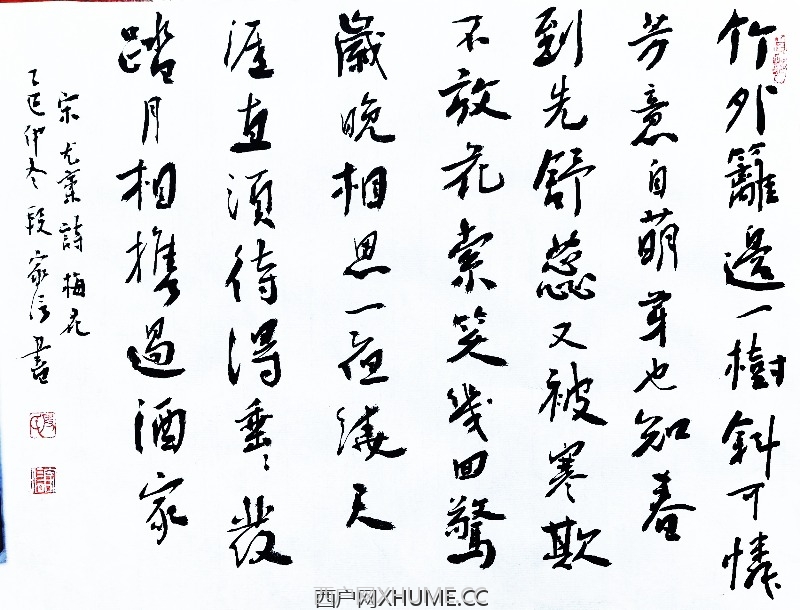 竹外籬邊一樹斜可憐
芳意自萌芽也知春
到先舒蕊又被寒欺
不放花索笑幾回驚
歲晚相思一夜繞天
涯直須待得垂〻發
踏月相攜過酒家
宋尤袤詩梅花
乙巳仲冬段家信書
西户网XHUME.CC